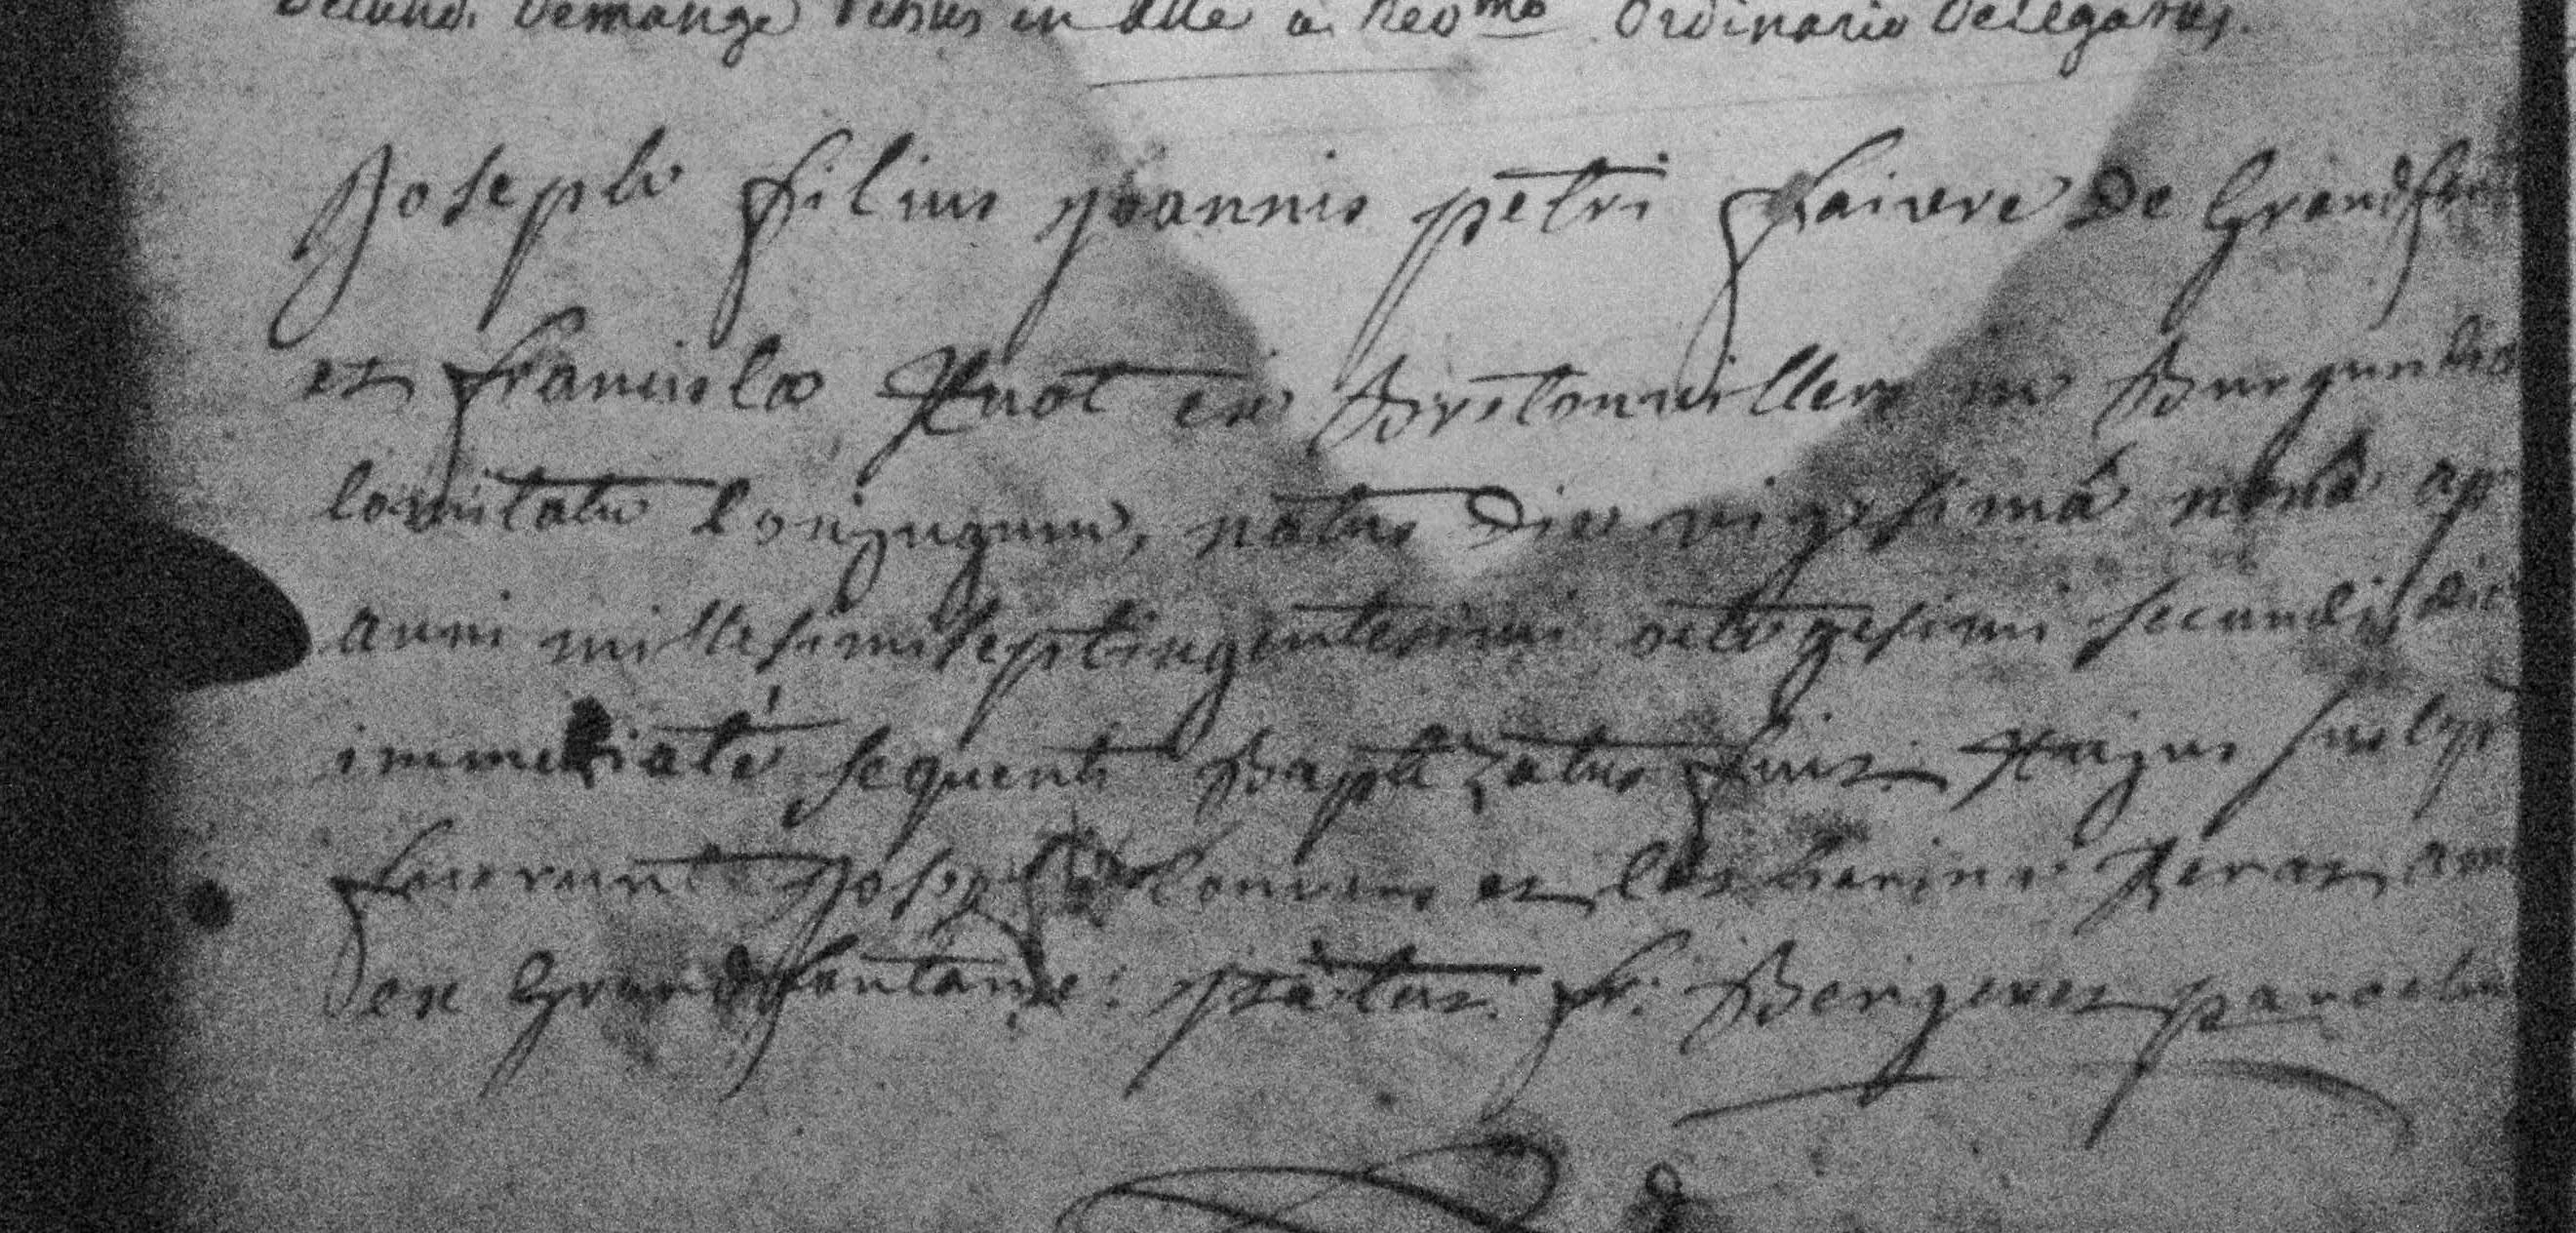 Demange in alle a Rev.mo Ordinario Delegatus.
Joseph filius joannis petri faivre de Grandfon
et francisca Huot ex Bretonviller in Burgundia
Comitatu Conjugum, natus Die vigesimâ nonâ ap
anni millesimi septingentesimi octogesimi secundi, die
immediaté sequenti Baptizatus fuit. Hujus susep
fuerunt Joseph et Catherina ex
ex Grandfontaine: fr: paroch